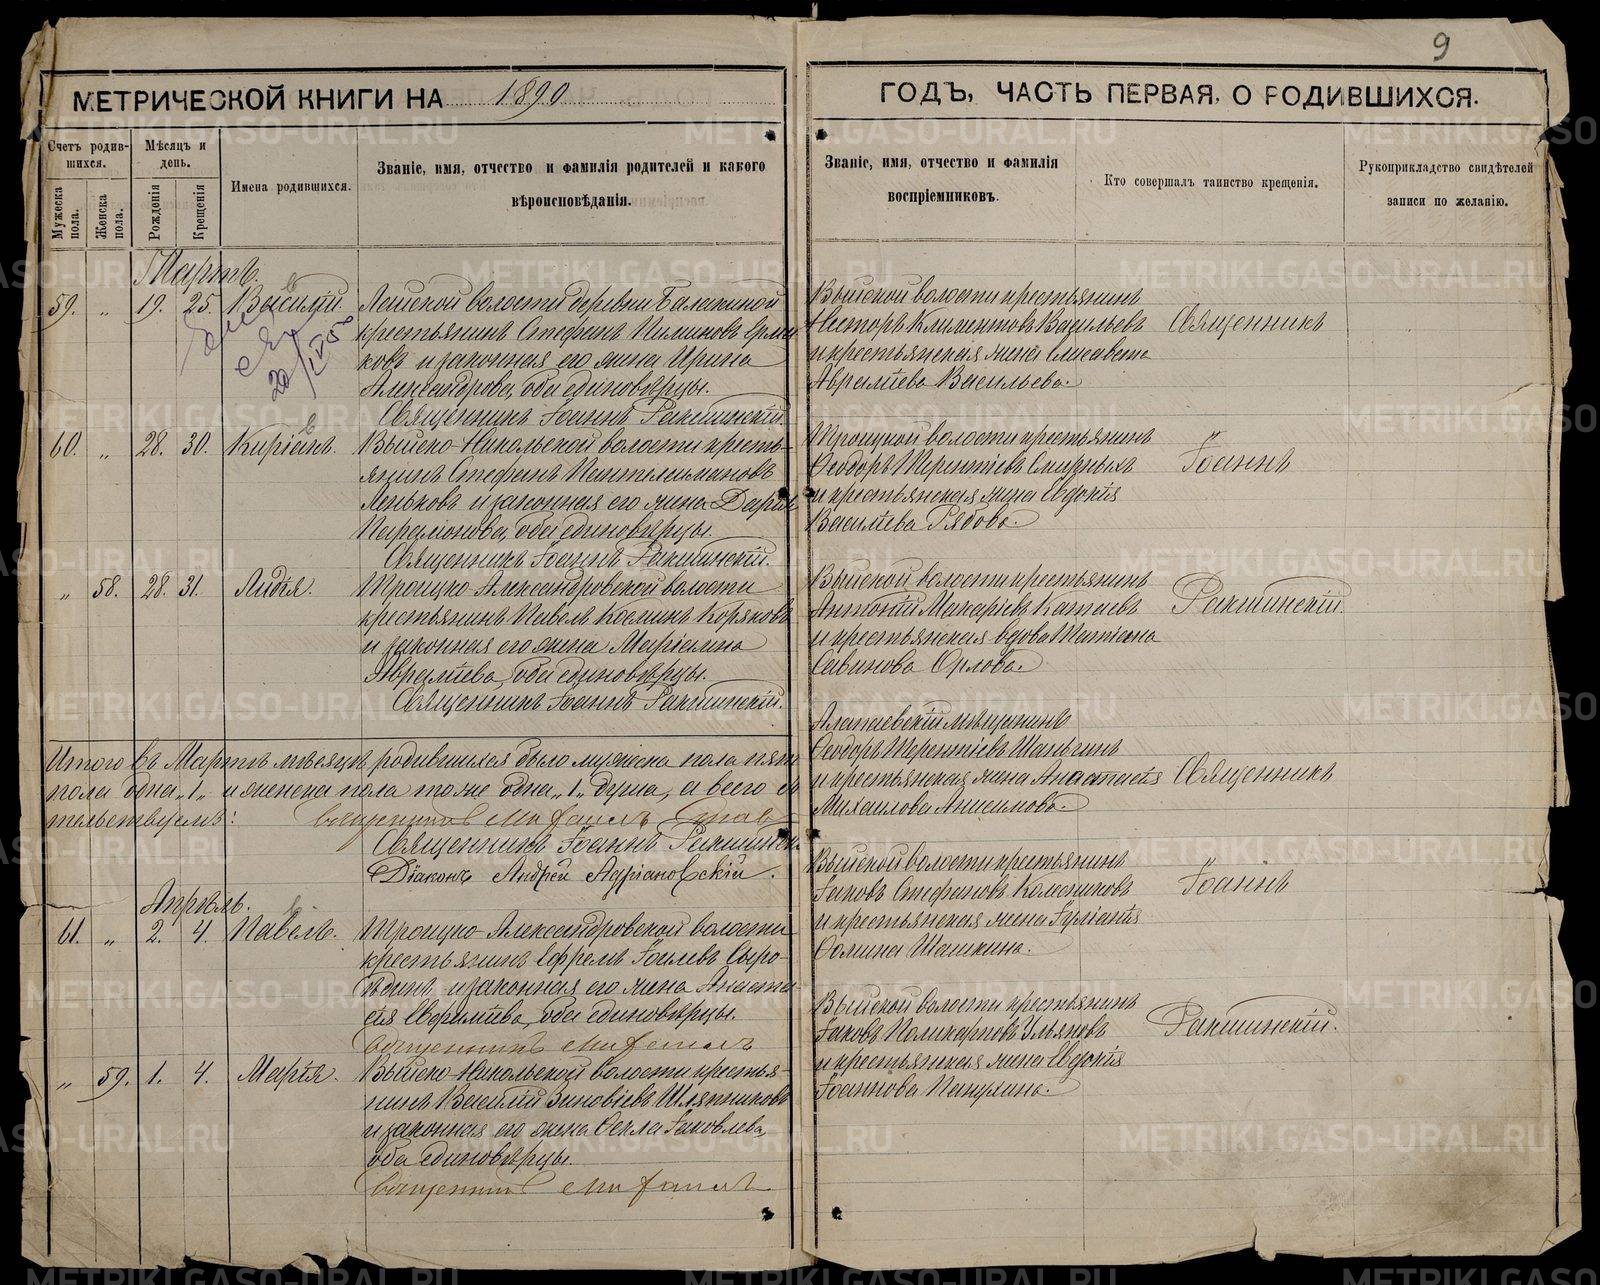 9
МЕТРИЧЕСКОЙ КНИГИ НА 1890
ГОДЪ, ЧАСТЬ ПЕРВАЯ, О РОДИВШИХСЯ.
Счетъ родившихся.
Мужеска пола.
Женска пола.
Мѣсяцъ и день.
Рожденія
Крещенія
Имена родившихся.
Званіе, имя, отчество и фамилія родителей и какого
вѣроисповѣданія.
Званіе, имя, отчество и фамилія
воспріемниковъ.
Кто совершалъ таинство крещенія.
Рукоприкладство свидѣтелей
записи по желанію.
Мартъ.
59. „ 19. 25. Василій.
волости деревни Балакиной
крестьянинъ Стефанъ Ерма
ковъ и законная его жена Ирина
Александрова, оба единовѣрцы.
Священникъ Іоаннъ Ракшинскій.
Выйской волости крестьянинъ
Несторъ Климентовъ Васильевъ
и крестьянская жена Елисавета
Авраміева Васильева.
Священникъ
60. „ 28. 30. Киріакъ.
Выйско-Никольской волости кресть-
янинъ Стефанъ Пантелеимоновъ
Леньковъ и законная его жена Дарія
Парамонова, оба единовѣрцы.
Священникъ Іоаннъ Ракшинскій.
Троицкой волости крестьянинъ
Ѳеодоръ Терентіевъ Смирныхъ
и крестьянская жена Евдокія
Василіева Рябова.
Іоаннъ
„ 58. 28. 31. Лидія.
Троицко-Александровской волости
крестьянинъ Павелъ Косминъ Коряковъ
и законная его жена Маріамна
Авраміева, оба единовѣрцы.
Священникъ Іоаннъ Ракшинскій.
Выйской волости крестьянинъ
Антоній Макаріевъ Катаевъ
и крестьянская вдова Татіана
Савинова Орлова.
Ракшинскій
Итого въ Мартѣ мѣсяцѣ родившихся было мужеска пола
пола одна „1„ и женска пола тоже одна „1„ душа, а всего
тельствуемъ:
Священникъ Михаилъ
Священникъ Іоаннъ Ракшинскій
Діаконъ Андрей Адріановскій.
Алапаевскій мѣщанинъ
Ѳеодоръ Терентіевъ Шаньгинъ
и крестьянская жена Анастасія
Михаилова Анисимова.
Священникъ
Апрѣль.
61. „ 2. 4. Павелъ.
Троицко-Александровской волости
крестьянинъ Ефремъ Іоилевъ Сыро-
ѣдинъ, и законная его жена Анаста-
сія Евфиміева, оба единовѣрцы.
Священникъ Михаилъ
Выйской волости крестьянинъ
Іаковъ Стефановъ Колесниковъ
и крестьянская жена Іуліанія
Ѳомина Шашкина.
Іоаннъ
„ 59. 1. 4. Марія.
Выйско-Никольской волости крестья-
нинъ Василій Зиновіевъ Шляпниковъ
и законная его жена Ѳекла Іаковлева,
оба единовѣрцы.
Священникъ Михаилъ
Выйской волости крестьянинъ
Іаковъ Поликарповъ Ульяновъ
и крестьянская жена Евдокія
Іоаннова Пичугина.
Ракшинскій.
METRIKI.GASO-URAL.RU